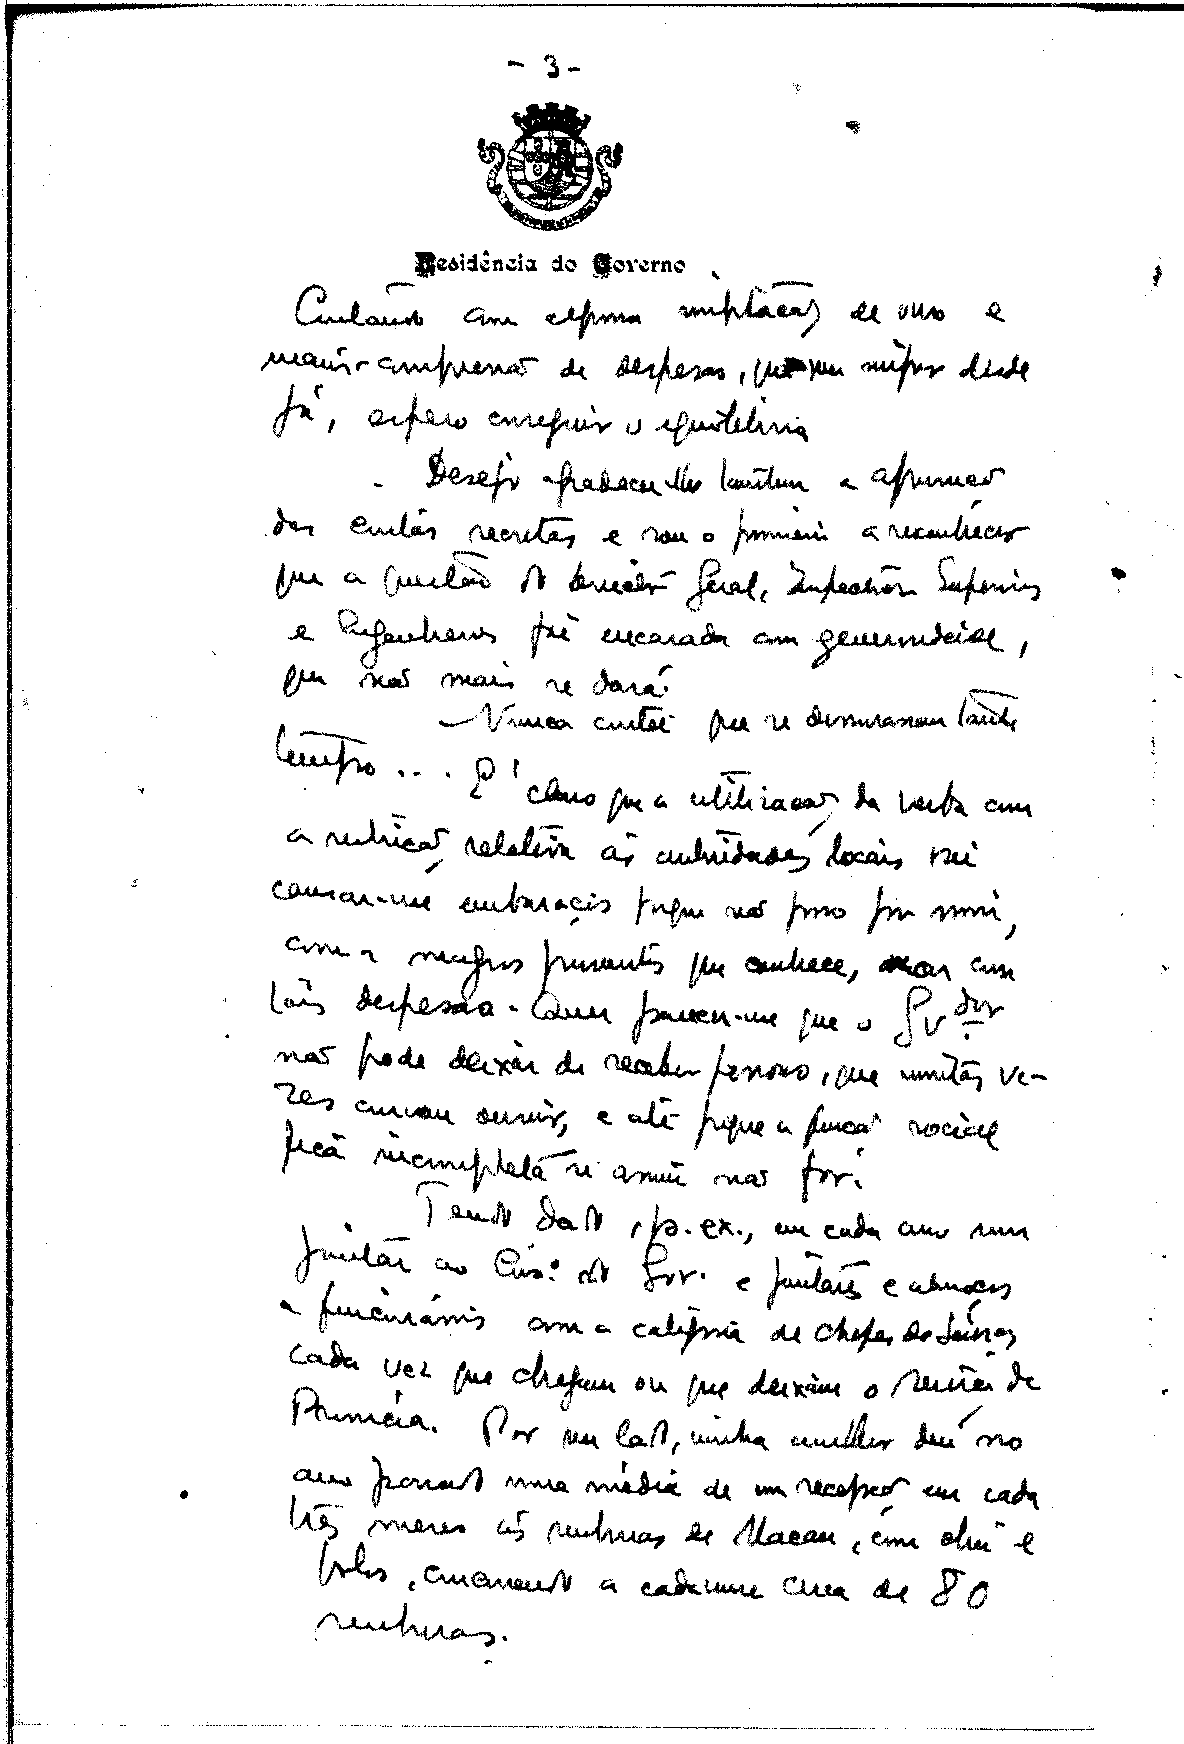 - 3 -
Residência do Governo
Contando com alguma implantação de ouro e
maior compressão de despesas, que vou impor desde
já, espero conseguir o equilíbrio
Desejo agradecer-lhe também a aprovação
das contas secretas e sou o primeiro a reconhecer
que a questão do Geral, Inspectores Superiores
e Engenheiros foi encarada com generosidade,
que não mais se dará.
Nunca contei que se demorassem tanto
tempo... É claro que a utilização da verba com
a rubrica relativa às autoridades locais vai
causar-me embaraços porque não posso por mim,
com os magros proventos que conhece, arcar com
tais despesas. Quer parecer-me que o Gv.dor
não pode deixar de receber pessoas, que muitas ve-
zes convém ouvir, e até porque a função social
fica incompleta se assim não for.
Tenho dado, p. ex., em cada ano um
jantar ao Cons.º do Gov. e jantares e almoços
a funcionários com a categoria de chefes de serviços
cada vez que chegam ou que deixam o serviço da
Província. Por seu lado, minha mulher deu no
ano passado uma média de uma recepção em cada
três meses às senhoras de Macau, com chá e
bolos, convidando a cada uma cerca de 80
senhoras.